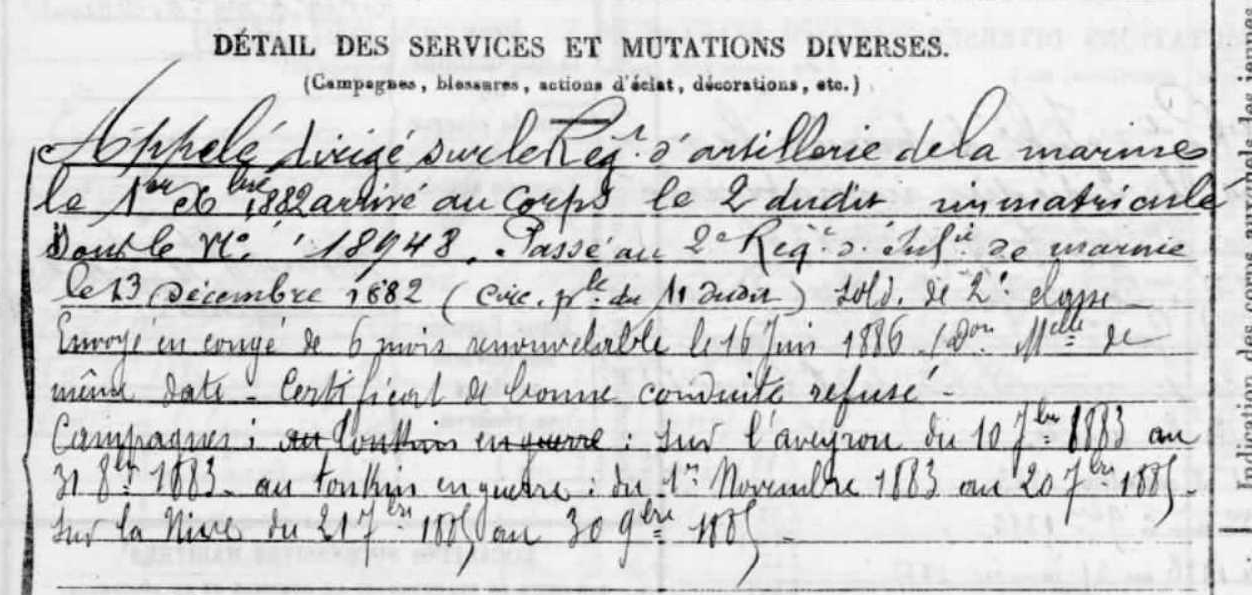 DÉTAIL DES SERVICES ET MUTATIONS DIVERSES.
(Campagnes, blessures, actions d'éclat, décorations, etc.)
Appelé dirigé sur le Régt d'artillerie de la marine
le 1er Xbre 1882 arrivé au corps le 2 dudit immatriculé
sous le No 18948. Passé au 2e Régt d'Infie de marine
le 13 Décembre 1882 (circ. plle du 11 dudit) sold. de 2e classe
Envoyé en congé de 6 mois renouvelable le 16 Juin 1886 (Don Melle de
même date - Certificat de bonne conduite refusé -
Campagnes : au Tonkin en guerre : sur l'aveyron du 10 7bre 1883 au
31 8bre 1883 - au Tonkin en guerre : du 1er Novembre 1883 au 20 7bre 1885 -
sur la Nive du 21 7bre 1885 au 30 9bre 1885 -